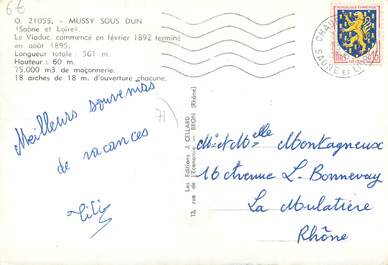 6€
O. 21055. - MUSSY SOUS DUN
(Saône et Loire).
Le Viaduc, commencé en février 1892 terminé
en août 1895.
Longueur totale : 561 m.
Hauteur : 60 m.
75,000 m3 de maçonnerie.
18 arches de 18 m. d'ouverture chacune.
71
Meilleurs souvenirs
de vacances
Lili
Les Editions J. CELLARD
13, rue de l'Economie - BRON (Rhône)
SAONE ET LOIRE
Mr et Melle Montagneux
16 Avenue L. Bonnevay
La Mulatière
Rhône